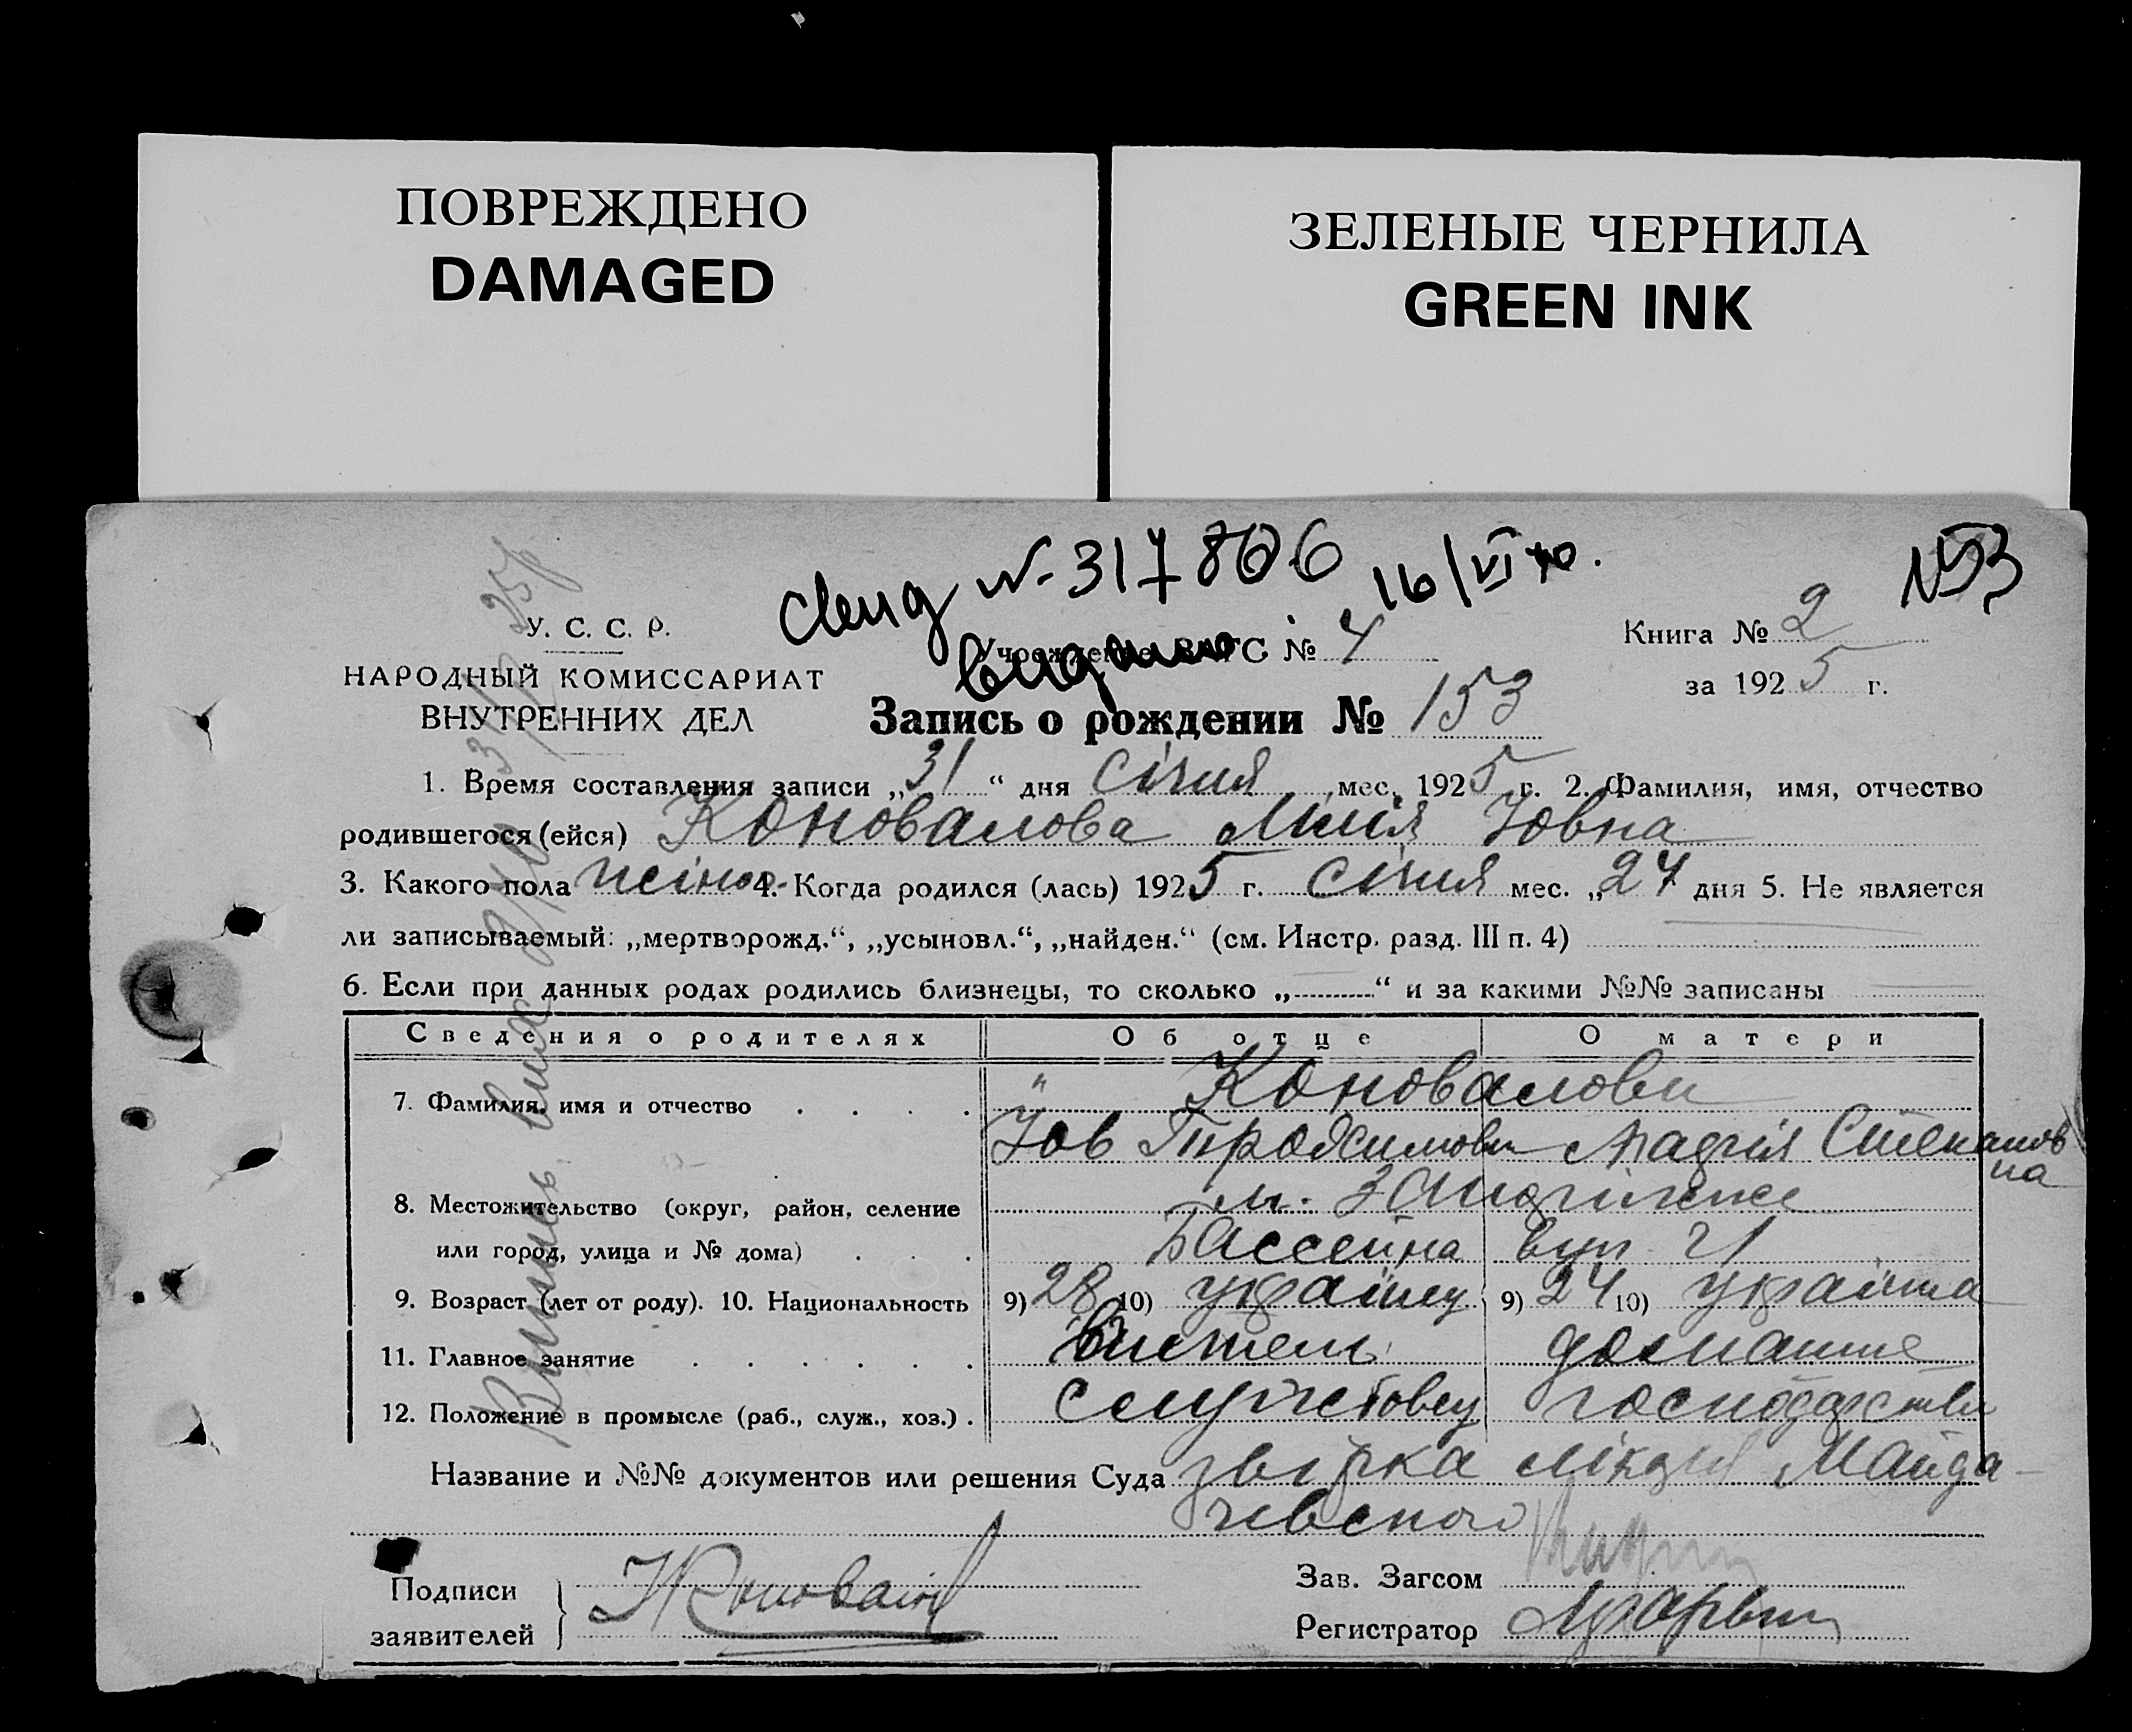 ПОВРЕЖДЕНО
DAMAGED
ЗЕЛЕНЫЕ ЧЕРНИЛА
GREEN INK
№ 317806 16/VI 40.
У. С. С. Р.
НАРОДНЫЙ КОМИССАРИАТ
ВНУТРЕННИХ ДЕЛ
видано
Учреждение ЗАГС № 4
Книга № 2
за 1925 г.
Запись о рождении № 153
1. Время составления записи „31“ дня січня мес. 1925 г. 2. Фамилия, имя, отчество
родившегося (ейся) Коновалова Лилія Йовна
3. Какого пола жіноч. 4. Когда родился (лась) 1925 г. січня мес. „24 дня 5. Не является
ли записываемый: „мертворожд.“, „усыновл.“, „найден.“ (см. Инстр. разд. III п. 4)
6. Если при данных родах родились близнецы, то сколько „ “ и за какими №№ записаны
Сведения о родителях Об отце О матери
7. Фамилия, имя и отчество " Коновалови
Йов Степанов
на
8. Местожительство (округ, район, селение
или город, улица и № дома) Бассейна вул 21
9. Возраст (лет от роду). 10. Национальность 9) 28 10) українец 9) 24 10) українка
11. Главное занятие домашне
12. Положение в промысле (раб., служ., хоз.) службовец господарство
Название и №№ документов или решения Суда Майда-
чевского
Подписи
заявителей
Коновалов
Зав. Загсом
Регистратор